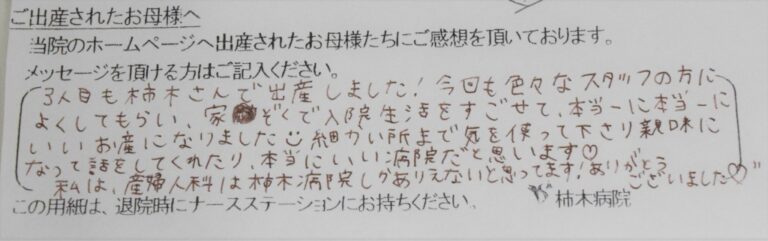 ご出産されたお母様へ
当院のホームページへ出産されたお母様たちにご感想を頂いております。
メッセージを頂ける方はご記入ください。
3人目も柿木さんで出産しました!今回も色々なスタッフの方に
よくしてもらい、家ぞくで入院生活をすごせて、本当ーに本当ーに
いいお産になりました 細かい所まで気を使って下さり親味に
なって話をしてくれたり、本当にいい病院だと思います♡
私は、産婦人科は柿木病院しかありえないと思ってます!ありがとう
ございました♡"
この用紙は、退院時にナースステーションにお持ちください。 柿木病院